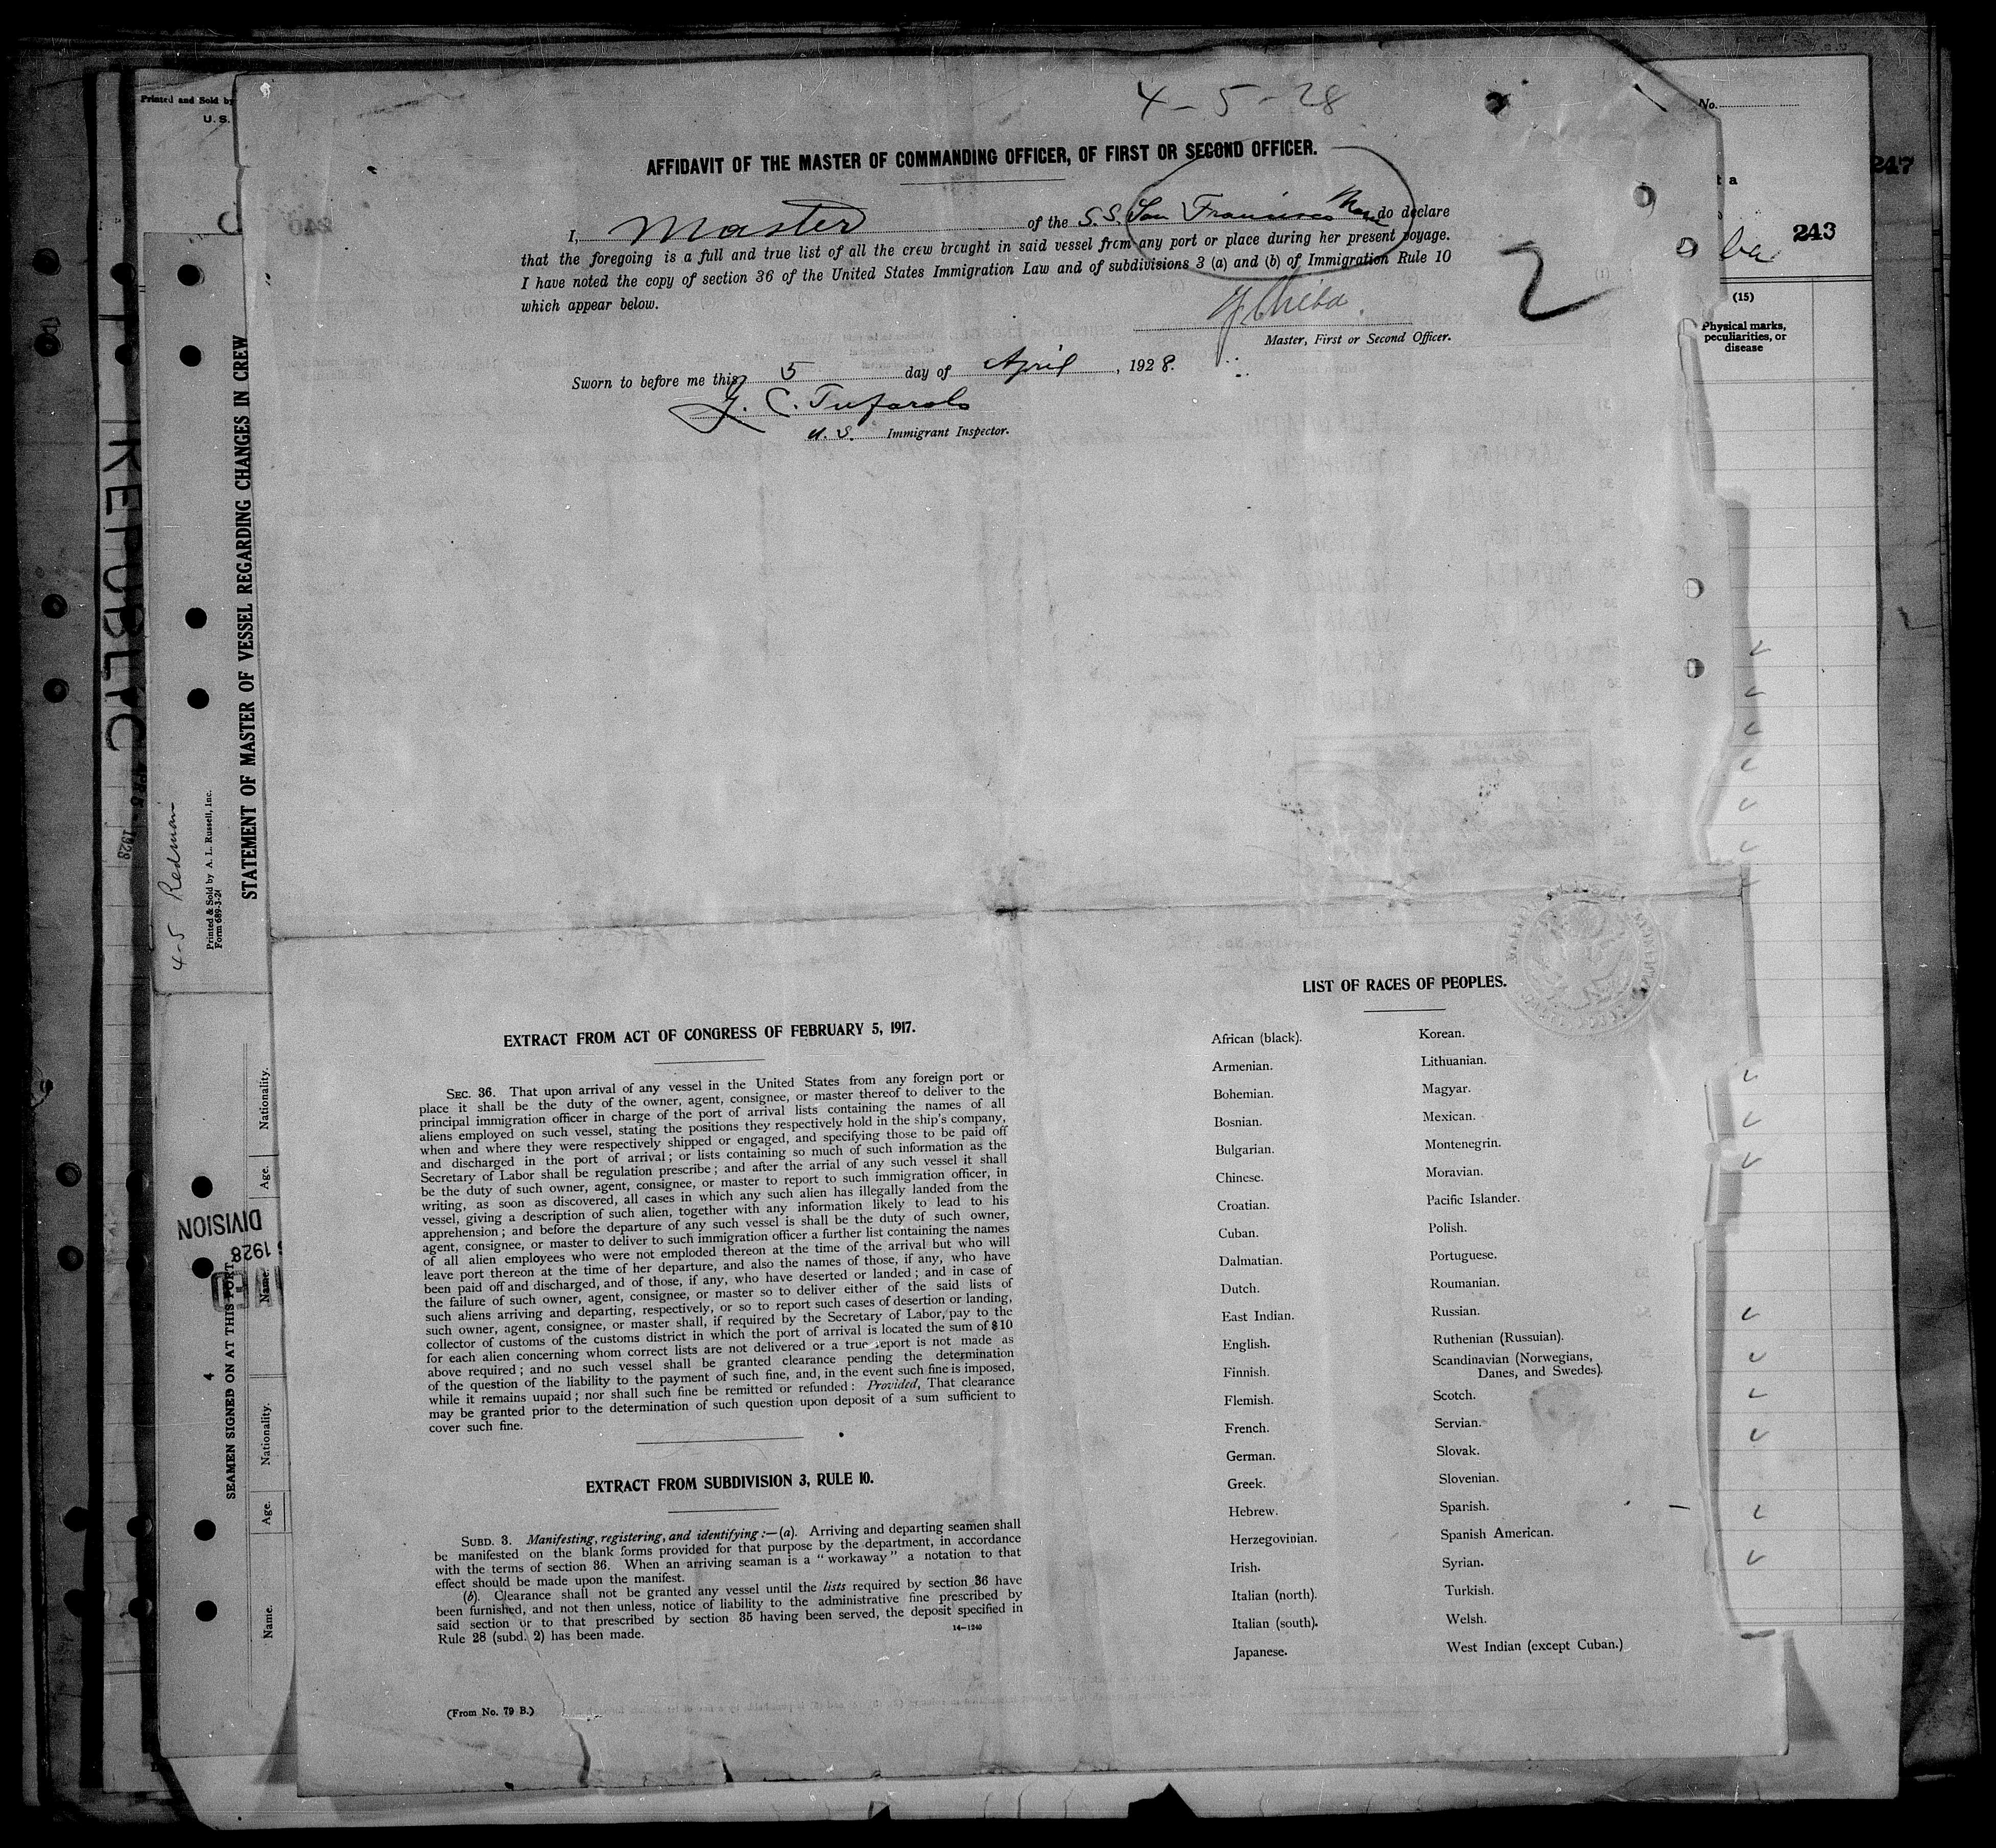 4-5-28
AFFIDAVIT OF THE MASTER OF COMMANDING OFFICER, OF FIRST OR SECOND OFFICER.
I, Master of the S.S. San Francisco Maru do declare
that the foregoing is a full and true list of all the crew brought in said vessel from any port or place during her present voyage.
I have noted the copy of section 36 of the United States Immigration Law and of subdivisions 3 (a) and (b) of Immigration Rule 10
which appear below.
Y. Chiba.
Master, First or Second Officer.
Sworn to before me this 5 day of April, 1928.
U.S. Immigrant Inspector.
2
EXTRACT FROM ACT OF CONGRESS OF FEBRUARY 5, 1917.
SEC. 36. That upon arrival of any vessel in the United States from any foreign port or
place it shall be the duty of the owner, agent, consignee, or master thereof to deliver to the
principal immigration officer in charge of the port of arrival lists containing the names of all
aliens employed on such vessel, stating the positions they respectively hold in the ship's company,
when and where they were respectively shipped or engaged, and specifying those to be paid off
and discharged in the port of arrival; or lists containing so much of such information as the
Secretary of Labor shall be regulation prescribe; and after the arrial of any such vessel it shall
be the duty of such owner, agent, consignee, or master to report to such immigration officer, in
writing, as soon as discovered, all cases in which any such alien has illegally landed from the
vessel, giving a description of such alien, together with any information likely to lead to his
apprehension; and before the departure of any such vessel is shall be the duty of such owner,
agent, consignee, or master to deliver to such immigration officer a further list containing the names
of all alien employees who were not emploded thereon at the time of the arrival but who will
leave port thereon at the time of her departure, and also the names of those, if any, who have
been paid off and discharged, and of those, if any, who have deserted or landed; and in case of
the failure of such owner, agent, consignee, or master so to deliver either of the said lists of
such aliens arriving and departing, respectively, or so to report such cases of desertion or landing,
such owner, agent, consignee, or master shall, if required by the Secretary of Labor, pay to the
collector of customs of the customs district in which the port of arrival is located the sum of $10
for each alien concerning whom correct lists are not delivered or a true report is not made as
above required; and no such vessel shall be granted clearance pending the determination
of the question of the liability to the payment of such fine, and, in the event such fine is imposed,
while it remains uupaid; nor shall such fine be remitted or refunded: Provided, That clearance
may be granted prior to the determination of such question upon deposit of a sum sufficient to
cover such fine.
EXTRACT FROM SUBDIVISION 3, RULE 10.
SUBD. 3. Manifesting, registering, and identifying:—(a). Arriving and departing seamen shall
be manifested on the blank forms provided for that purpose by the department, in accordance
with the terms of section 36. When an arriving seaman is a "workaway" a notation to that
effect should be made upon the manifest.
(b). Clearance shall not be granted any vessel until the lists required by section 36 have
been furnished, and not then unless, notice of liability to the administrative fine prescribed by
said section or to that prescribed by section 35 having been served, the deposit specified in
Rule 28 (subd. 2) has been made.
14—1240
(From No. 79 B.)
LIST OF RACES OF PEOPLES.
African (black).
Armenian.
Bohemian.
Bosnian.
Bulgarian.
Chinese.
Croatian.
Cuban.
Dalmatian.
Dutch.
East Indian.
English.
Finnish.
Flemish.
French.
German.
Greek.
Hebrew.
Herzegovinian.
Irish.
Italian (north).
Italian (south).
Japanese.
Korean.
Lithuanian.
Magyar.
Mexican.
Montenegrin.
Moravian.
Pacific Islander.
Polish.
Portuguese.
Roumanian.
Russian.
Ruthenian (Russuian).
Scandinavian (Norwegians,
Danes, and Swedes).
Scotch.
Servian.
Slovak.
Slovenian.
Spanish.
Spanish American.
Syrian.
Turkish.
Welsh.
West Indian (except Cuban.)
Printed and Sold by
U. S.
REPUBLIC
1928
4-5 Redman
Printed & Sold by A. L. Russell, Inc.
Form 689-3-2
STATEMENT OF MASTER OF VESSEL REGARDING CHANGES IN CREW
4
SEAMEN SIGNED ON AT THIS PORT
Name.
Age.
Nationality.
Name.
Age.
Nationality.
DIVISION
1928
No.
247
243
ba
(15)
Physical marks,
peculiarities, or
disease